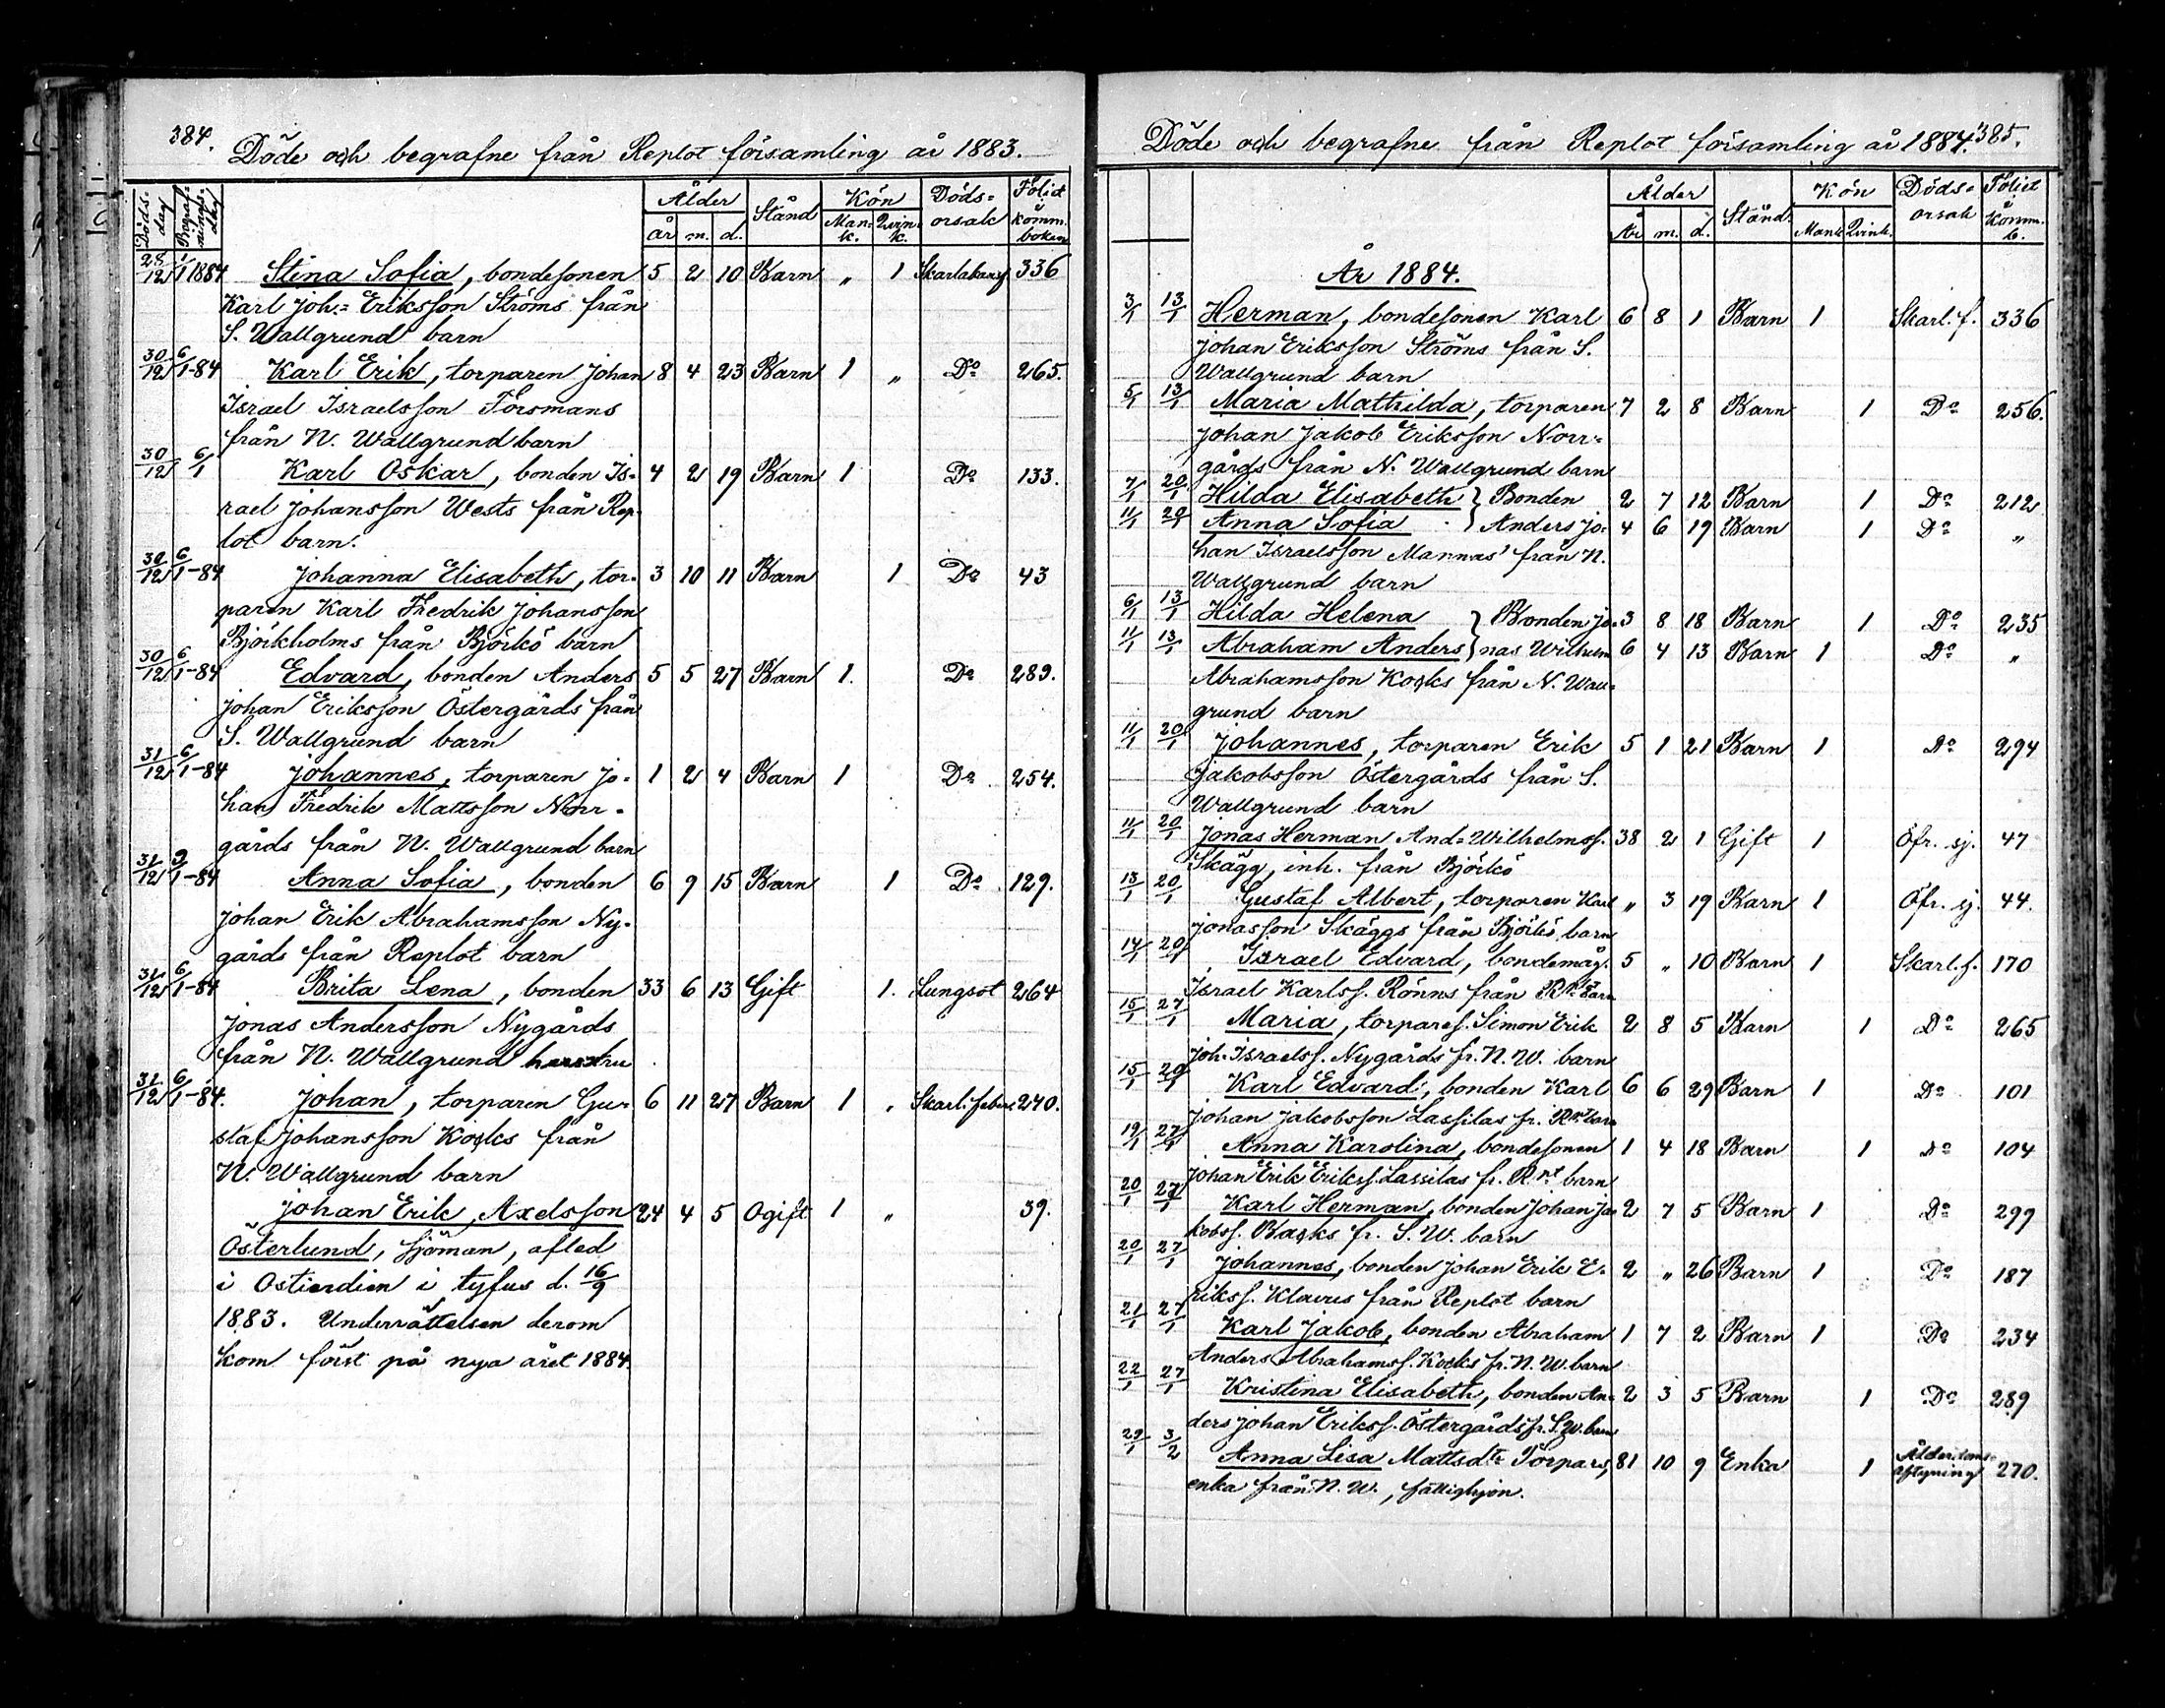 384.
Döde och begrafne från Replot församling år 1883.
Döds-dag Begrafningsdag Ålder Stånd Kön Döds-orsak Folio i komm. boken
år m. d. Mank. Qvink.
28/12 1/1 1884 Stina Sofia, bondesonen 5 2 10 Barn „ 1 Skarlakansf 336
Karl Joh.= Eriksson Ströms från
S. Wallgrund barn
30/12 6/1-84 Karl Erik, torparen Johan 8 4 23 Barn 1 „ Do 265.
Israel Israelsson Forsmans
från N. Wallgrund barn
30/12 6/1 Karl Oskar, bonden Is- 4 2 19 Barn 1 Do 133.
rael Johansson Wests från Rep-
lot barn.
30/12 6/1-84 Johanna Elisabeth, tor- 3 10 11 Barn 1 Do 43
paren Karl Fredrik Johansson
Björkholms från Björkö barn
30/12 6/1-84 Edvard, bonden Anders 5 5 27 Barn 1. Do 289.
Johan Eriksson Östergårds från
S. Wallgrund barn
31/12 6/1-84 Johannes, torparen Jo- 1 2 4 Barn 1 Do 254.
han Fredrik Mattsson Norr-
gårds från N. Wallgrund barn
31/12 9/1-84 Anna Sofia, bonden 6 9 15 Barn 1 Do 129.
Johan Erik Abrahamsson Ny-
gårds från Replot barn
31/12 6/1-84 Brita Lena, bonden 33 6 13 Gift 1. Lungsot 264
Jonas Andersson Nygårds
från N. Wallgrund hustru
31/12 6/1-84. Johan, torparen Gu- 6 11 27 Barn 1 „ Skarl. feber 270.
staf Johansson Kocks från
N. Wallgrund barn
Johan Erik Axelsson 24 4 5 Ogift 1 „ 39.
Österlund, sjöman, afled
i Ostindien i tyfus d. 16/9
1883. Underrättelsen derom
kom först på nya året 1884.
Döde och begrafne från Replot församling år 1884. 385.
Ålder Stånd. Kön Döds-orsak Foliet i Komm. b.
År m. d. Mank Qvink.
År 1884.
3/1 13/1 Herman, bondesonen Karl 6 8 1 Barn 1 Skarl. f. 336
Johan Eriksson Ströms från S.
Wallgrund barn
5/1 13/1 Maria Mathilda, torparen 7 2 8 Barn 1 Do 256.
Johan Jakob Eriksson Norr-
gårds från N. Wallgrund barn
7/1 20/1 Hilda Elisabeth } Bonden 2 7 12 Barn 1 Do 212
11/1 20/1 Anna Sofia } Anders Jo- 4 6 19 Barn 1 Do „
han Israelsson Mannas' från N.
Wallgrund barn
6/1 13/1 Hilda Helena } Bonden Jo- 3 8 18 Barn 1 Do 235
11/1 13/1 Abraham Anders } nas Wilhelm 6 4 13 Barn 1 Do „
Abrahamsson Kocks från N. Wall-
grund barn
11/1 20/1 Johannes, torparen Erik 5 1 21 Barn 1 Do 294
Jakobsson Östergårds från S.
Wallgrund barn
11/1 20/1 Jonas Herman And= Wilhelmss. 38 2 1 Gift 1 Öfr. sj. 47
Skägg, inh. från Björkö
13/1 20/1 Gustaf Albert, torparen Karl „ 3 19 Barn 1 Öfr. sj. 44.
Jonasson Skäggs från Björkö barn
14/1 20/1 Israel Edvard, bondemåg. 5 „ 10 Barn 1 Skarl. f. 170
Israel Karlss. Rönns från barn
15/1 27/1 Maria, torpares. Simon Erik 2 8 5 Barn 1 Do 265
Joh. Israelss. Nygårds fr. N. W. barn
15/1 20/1 Karl Edvard, bonden Karl 6 6 29 Barn 1 Do 101
Johan Jakobsson Lassilas fr. Rpt barn
19/1 27/1 Anna Karolina, bondesonen 1 4 18 Barn 1 Do 104
Johan Erik Erikss. Lassilas fr. Rpt barn
20/1 27/1 Karl Herman, bonden Johan Ja- 2 7 5 Barn 1 Do 299
kobss. Backs fr. S. W. barn
20/1 27/1 Johannes, bonden Johan Erik E- 2 „ 26 Barn 1 Do 187
rikss. Klavus från Replot barn
21/1 27/1 Karl Jakob, bonden Abraham 1 7 2 Barn 1 Do 234
Anders Abrahamss. Kocks fr. N. W. barn
22/1 27/1 Kristina Elisabeth, bonden An- 2 3 5 Barn 1 Do 289
ders Johan Erikss. Östergårds fr. S. W. barn
29/1 3/2 Anna Lisa Mattsdtr Torpars, 81 10 9 Enka 1 Ålderdoms-aftyning 270.
enka från N. W., fattighjon.